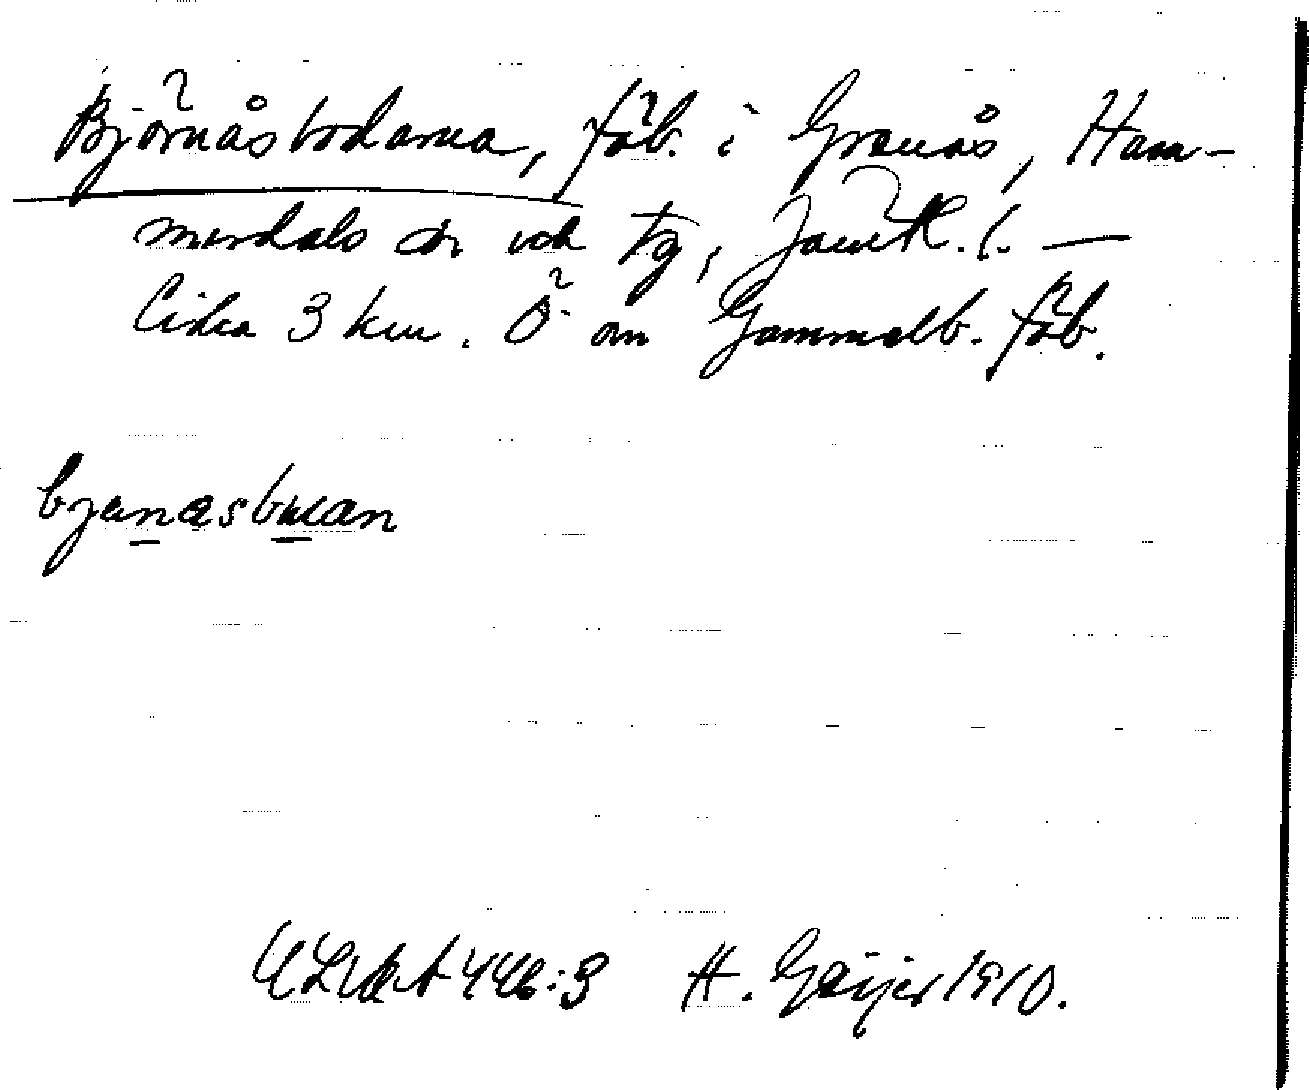 Björnåsbodarna, fäb. i Granås, Ham-
merdals sn och tg, Jämtl. l. —
Cirka 3 km. Ö om Gammelb. fäb.
bjɶnæsbuan
446:3 H. Geijer 1910.